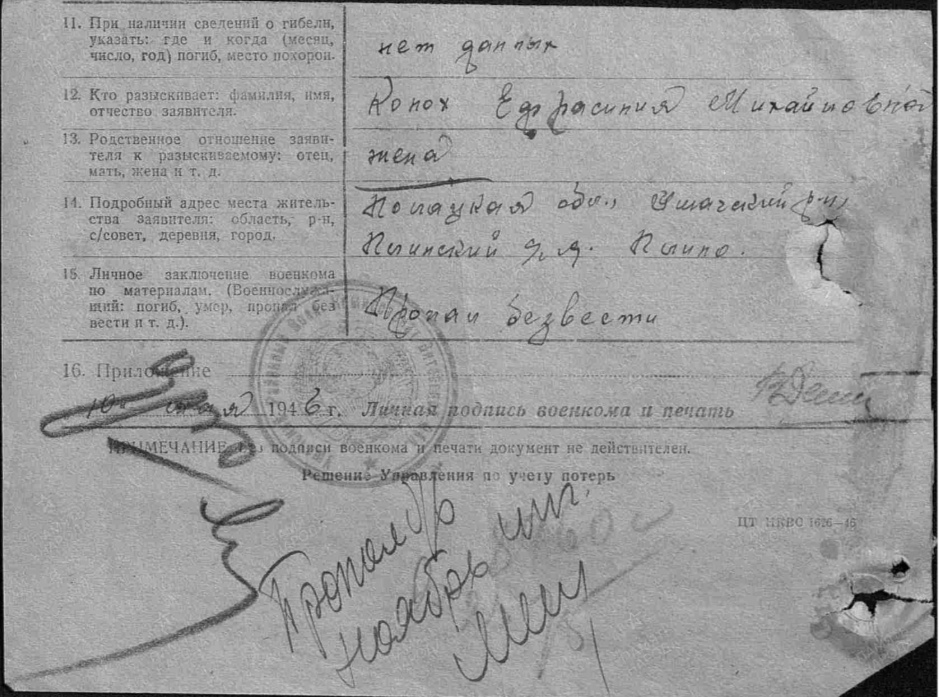 11. При наличии сведений о гибели,
указать: где и когда (месяц,
число, год) погиб, место похорон.
нет данных
12. Кто разыскивает: фамилия, имя,
отчество заявителя.
Конох Ефрасиния Михайловна
13. Родственное отношение заяви-
теля к разыскиваемому: отец,
мать, жена и т. д.
жена
14. Подробный адрес места житель-
ства заявителя: область, р-н,
с/совет, деревня, город.
Полацкая обл., Ушачский р-н,
15. Личное заключение военкома
по материалам. (Военнослужа-
щий: погиб, умер, пропал без
вести и т. д.).
Пропал безвести
16. Приложение
10 мая 1946 г. Личная подпись военкома и печать
ПРИМЕЧАНИЕ. Без подписи военкома и печати документ не действителен.
Решение Управления по учету потерь
ЦТ НКВС 1626—46
Пропал б/в
ноябрь